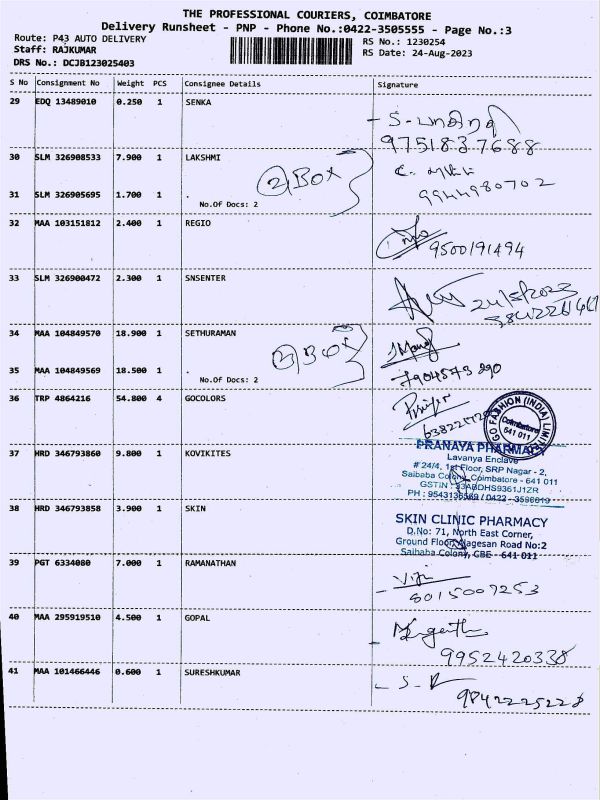 THE PROFESSIONAL COURIERS, COIMBATORE
Delivery Runsheet - PNP - Phone No.:0422-3505555 - Page No.:3
Route: P43 AUTO DELIVERY
RS No.: 1230254
Staff: RAJKUMAR
RS Date: 24-Aug-2023
DRS No.: DCJB123025403
S No Consignment No Weight PCS Consignee Details Signature
29 EDQ 13489010 0.250 1 SENKA
9751837688
30 SLM 326908533 7.900 1 LAKSHMI
2 Box
31 SLM 326905695 1.700 1 .
9944980702
No.Of Docs: 2
32 MAA 103151812 2.400 1 REGIO
9500191494
33 SLM 326900472 2.300 1 SNSENTER
34 MAA 104849570 18.900 1 SETHURAMAN
2 Box
35 MAA 104849569 18.500 1 .
7904573890
No.Of Docs: 2
36 TRP 4864216 54.800 4 GOCOLORS
GO FASHION (INDIA) LIMITED
Coimbatore
641 011
37 HRD 346793860 9.800 1 KOVIKITES
PRANAYA PHARMACY
Lavanya Enclave
# 24/4, 1st Floor, SRP Nagar - 2,
Saibaba Colony, Coimbatore - 641 011
GSTIN : 33ABDHS9361J1ZR
38 HRD 346793858 3.900 1 SKIN
SKIN CLINIC PHARMACY
D.No: 71, North East Corner,
Ground Floor, Alagesan Road No:2
Saibaba Colony, CBE - 641 011
39 PGT 6334080 7.000 1 RAMANATHAN
8015009253
40 MAA 295919510 4.500 1 GOPAL
9952420338
41 MAA 101466446 0.600 1 SURESHKUMAR
9842225228